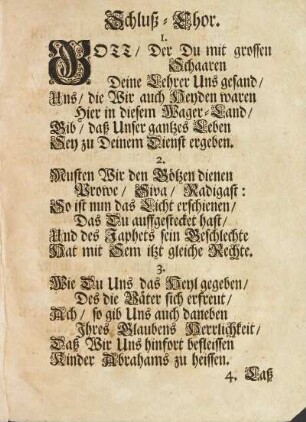 Schluß-Chor.
1.
GOTT/ Der Du mit grossen
Schaaren
Deine Lehrer Uns gesand/
Uns/ die Wir auch Heyden waren
Hier in diesem Wager-Land/
Gib/ daß Unser gantzes Leben
Sey zu Deinem Dienst ergeben.
2.
Musten Wir den Götzen dienen
Prowe/ Siwa/ Radigast:
So ist nun das Licht erschienen/
Das Du auffgestecket hast/
Und des Japhets sein Geschlechte
Hat mit Sem itzt gleiche Rechte.
3.
Wie Du Uns das Heyl gegeben/
Des die Väter sich erfreut/
Ach/ so gib Uns auch daneben
Ihres Glaubens Herrlichkeit/
Daß Wir Uns hinfort befleissen
Kinder Abrahams zu heissen.
4. Laß